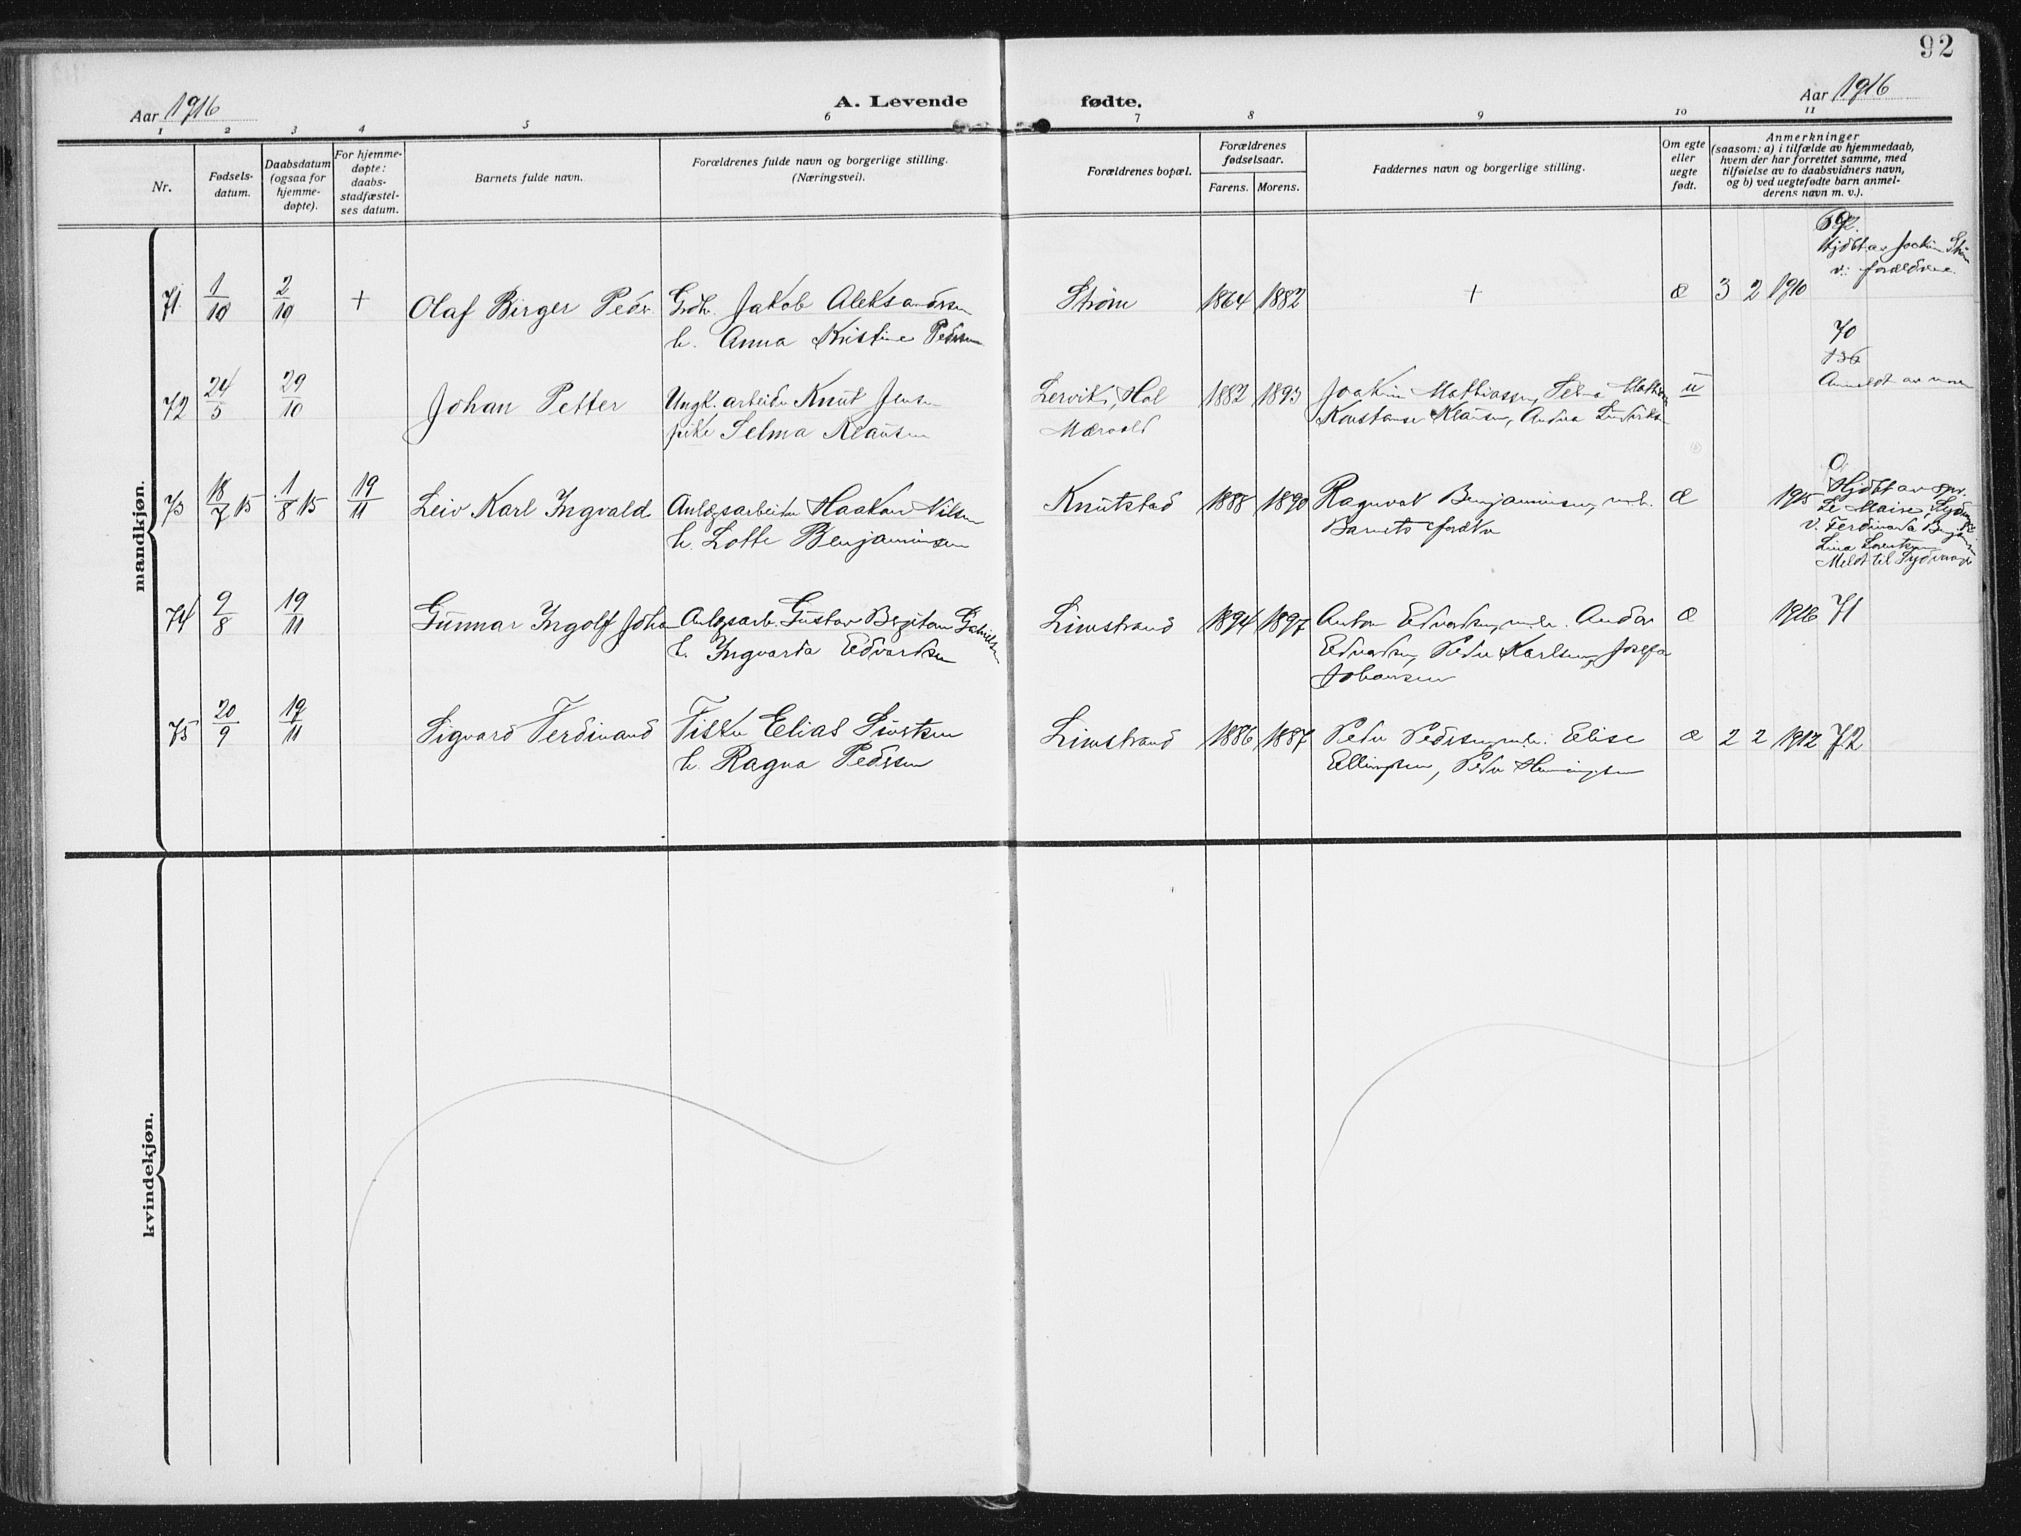 92
Aar 1916
A. Levende fødte.
Aar 1916
1 2 3 4 5 6 7 8 9 10 11
Nr.
Fødsels-
datum.
Daabsdatum
(ogsaa for
hjemme-
døpte).
For hjemme-
døpte:
daabs-
stadfæstel-
ses datum.
Barnets fulde navn.
Forældrenes fulde navn og borgerlige stilling.
(Næringsvei).
Forældrenes bopæl.
Forældrenes
fødselsaar.
Farens. Morens.
Faddernes navn og borgerlige stilling.
Om egte
eller
uegte
født.
Anmerkninger
(saasom: a) i tilfælde av hjemmedaab,
hvem der har forrettet samme, med
tilføielse av to daabsvidners navn,
og b) ved uegtefødte barn anmel-
derens navn m. v.).
mandkjøn.
69.
Hjdbt av Joakim Strøm
v. forældrene
71 1/10 2/10 + Olaf Birger Peder Gdbr. Jakob Aleksandersen Strøm 1864 1882 + æ 3 2 1910
h. Anna Kristine Pedersen
70
Anmeldt av moren
72 24/5 29/10 Johan Petter Ungk. arbeider Knut Jensen Lervik, Hol 1882 1893 Joakim Mathiassen, Selma Mathisen u
pike Selma Klausen
Konstanse Klausen, Andrea
73 18/7 15 1/8 15 19/11 Leiv Karl Ingvald Anlægsarbeider Haakon Nilsen Knutstad 1888 1890 Ragnvat Benjaminsen, m.h. æ 1915 Hjdbt av
h. Lotte Benjaminsen
Barnets forældre
v. Ferdinanda Benjaminsen
Lina Lorentsen
Meldt til
74 9/8 19/11 Gunnar Ingolf Johan Anlægsarb. Gustav Bergiton Gabrielsen Limstrand 1894 1897 Anton Edvardsen, m.h. Andor æ 1916 71
h. Ingvarda Edvardsen
Edvardsen, Peder Karlsen, Josefa
Johansen
75 20/9 19/11 Sigvard Ferdinand Fisker Elias Sivertsen Limstrand 1886 1887 Peder Pedersen, m.h. Elise æ 2 2 1912 72
h. Ragna Pedersen
Ellingsen, Peder Henningsen
kvindekjøn.